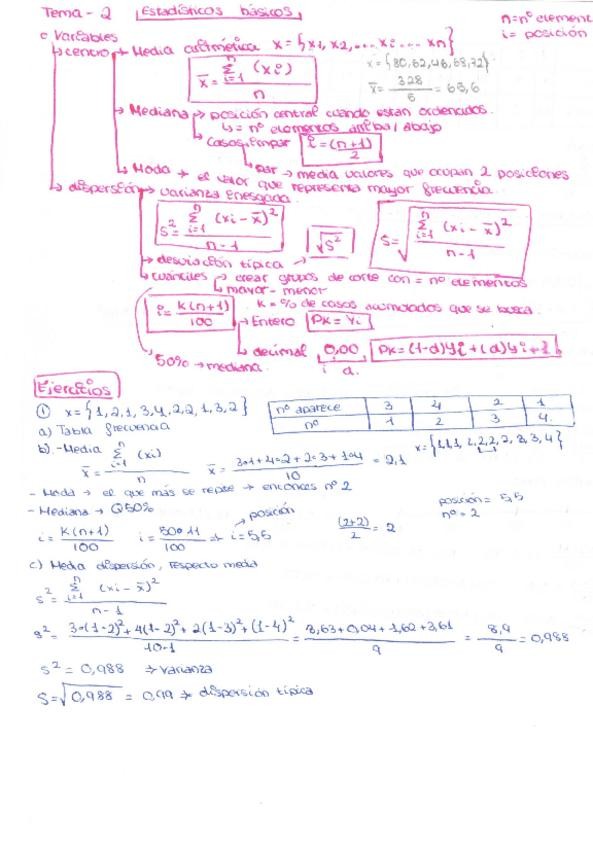 Tema - 2 Estadísticos básicos
n = nº element
i = posición
Variables
centro → Media aritmética x = {x1, x2, .... xi ... xn}
x̄ = Σ i=1 n (xi) / n
x = {80, 62, 46, 68, 72}
x̄ = 328 / 5 = 65,6
Mediana → posición central cuando estan ordenados.
= nº elementos arriba/abajo
casos: impar i = (n+1) / 2
par → media valores que ocupan 2 posiciones
Moda → el valor que representa mayor frecuencia.
dispersión → varianza insesgada
s² = Σ i=1 n (xi - x̄)² / n-1
√s²
S = √ Σ i=1 n (xi - x̄)² / n-1
desviación típica →
cuantiles → crear grupos de corte con = nº elementos
mayor - menor
i = K(n+1) / 100 K = % de casos acumulados que se busca.
Entero PK = Yi
decimal 0,00 PK = (1-d)yi + (d)yi+1
i d.
50% → mediana.
Ejercicios
① x = {1, 2, 1, 3, 4, 2, 2, 1, 3, 2}
nº aparece 3 4 2 1
nº 1 2 3 4
a) Tabla frecuencia
b) - Media x̄ = Σ i=1 n (xi) / n x̄ = 3·1+4·2+2·3+1·4 / 10 = 2,1
x = {1,1,1, 2,2,2,2, 3, 3, 4}
- Moda → el que más se repite → entonces nº 2
- Mediana → Q50%
posición
posición = 5,5
nº = 2
i = K(n+1) / 100 i = 50·11 / 100 → i = 5,5 (2+2) / 2 = 2
c) Media dispersión, respecto media
s² = Σ i=1 n (xi - x̄)² / n-1
s² = 3·(1-2)² + 4(1-2)² + 2(1-3)² + (1-4)² / 10-1 = 3,63+0,04+1,62+3,61 / 9 = 8,9 / 9 = 0,988
s² = 0,988 → varianza
S = √0,988 = 0,99 → dispersión típica